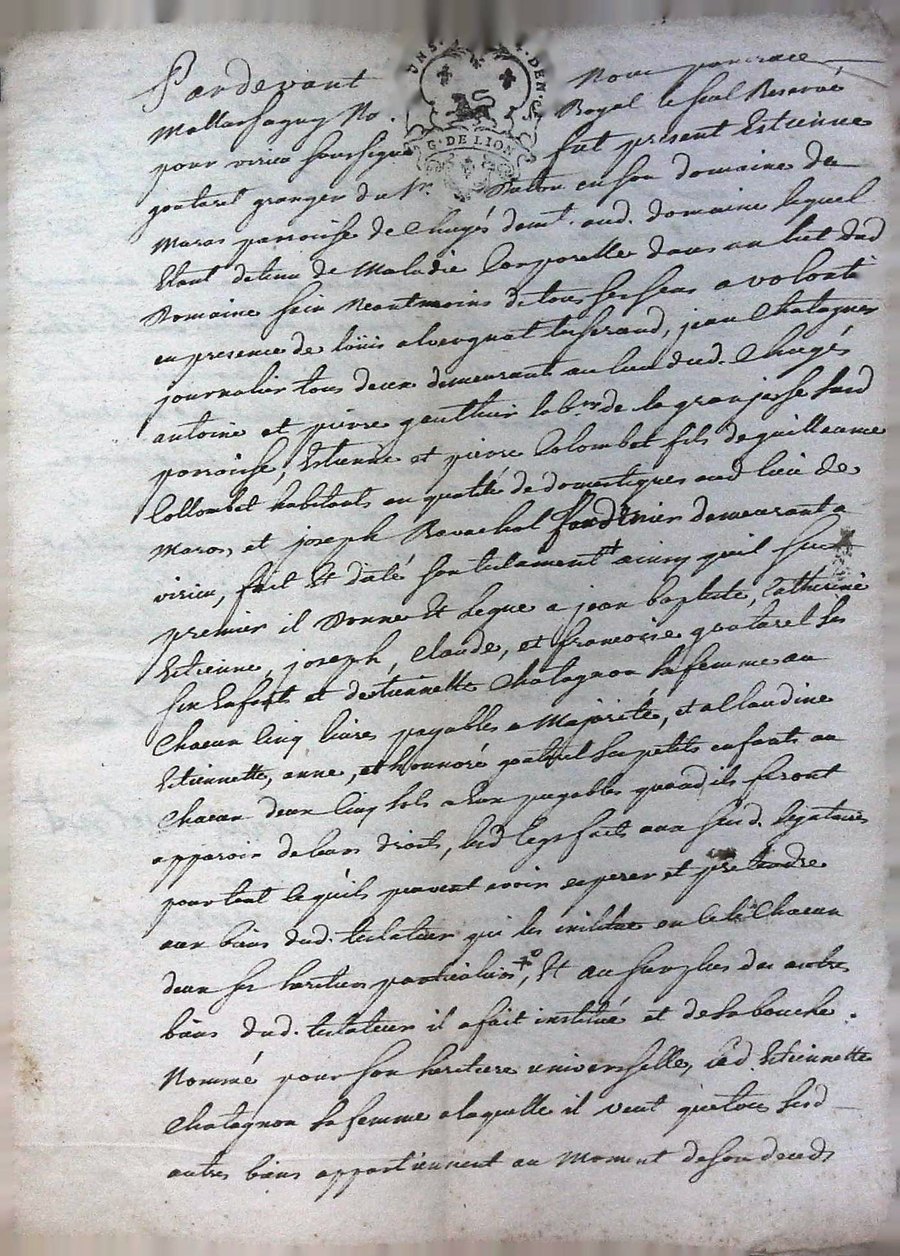 Pardevant Nous pancrace
UNS. DEN. G. DE LION
Mallassagny No. Royal le seul Reservé
pour virieu soussigné fut present Estienne
goutarel granger du Sr. en son domaine de
Maras parroisse de Chugés demt. aud. domaine lequel
Etant detenu de Maladie Corporelle dans un lict dud
Domaine sein Neantmoins de tous ses sens a volonté
en presence de loüis alvergnat tisserand, jean Chatagner
journalier tous deux demeurants au lieu dud. Chugés
antoine et pierre gauthier labrs de la granjasse susd
parroisse, Estienne et pierre Colombet fils de guillaume
Collombet habitants en qualité de domestiques aud lieu de
Maras, et joseph Ravachol demeurant a
virieu, fait Et daté son testament ainsy quil suit
premier il Donne Et legue a jean baptiste, Catherine
Estienne, joseph, Claude, et francoise goutarel ses
six Enfants et destiennette Chatagnon sa femme au
Chacun Cinq livres payables a Majorité, et a Claudine
Estiennette, anne, et honnoré goutarel ses petits enfants au
Chacun deux Cinq sols aux payables quand ils feront
apparoir de leurs droits, lesd legs faits aux susd. legataires
pour tout ce quils peuvent avoir esperer et pretendre
aux biens dud. testateur qui les institue en Cela Chacun
deux ses heritiers particuliers, Et au surplus des autres
biens dud. testateur il a fait institué et de sa bouche
Nommé pour son heritiere universelle, lad. Estiennette
Chatagnon sa femme a laquelle il veut que tous sesd
autres biens appartiennent au Moment de son deceds